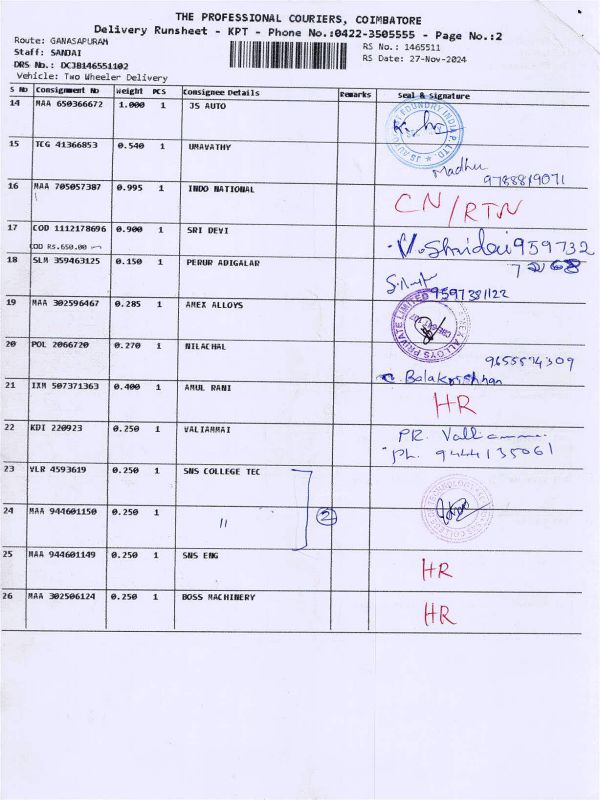 THE PROFESSIONAL COURIERS, COIMBATORE
Delivery Runsheet - KPT - Phone No.:0422-3505555 - Page No.:2
Route: GANASAPURAM
RS No.: 1465511
Staff: SANDAI
RS Date: 27-Nov-2024
DRS No.: DCJB146551102
Vehicle: Two Wheeler Delivery
S No Consignment No Weight PCS Consignee Details Remarks Seal & Signature
14 MAA 650366672 1.000 1 JS AUTO
15 TCG 41366853 0.540 1 UMAVATHY
Madhu
9788819071
16 MAA 705057387 0.995 1 INDO NATIONAL CN/RTN
17 COD 1112178696 0.900 1 SRI DEVI
COD RS.650.00
18 SLM 359463125 0.150 1 PERUR ADIGALAR
9597381122
19 MAA 302596467 0.285 1 AMEX ALLOYS
20 POL 2066720 0.270 1 NILACHAL
9655574309
Balakrishnan
21 IXM 507371363 0.400 1 AMUL RANI HR
22 KDI 220923 0.250 1 VALIAMMAI
Ph. 9444135061
23 VLR 4593619 0.250 1 SNS COLLEGE TEC
24 MAA 944601150 0.250 1 11 2
25 MAA 944601149 0.250 1 SNS ENG HR
26 MAA 302506124 0.250 1 BOSS MACHINERY HR